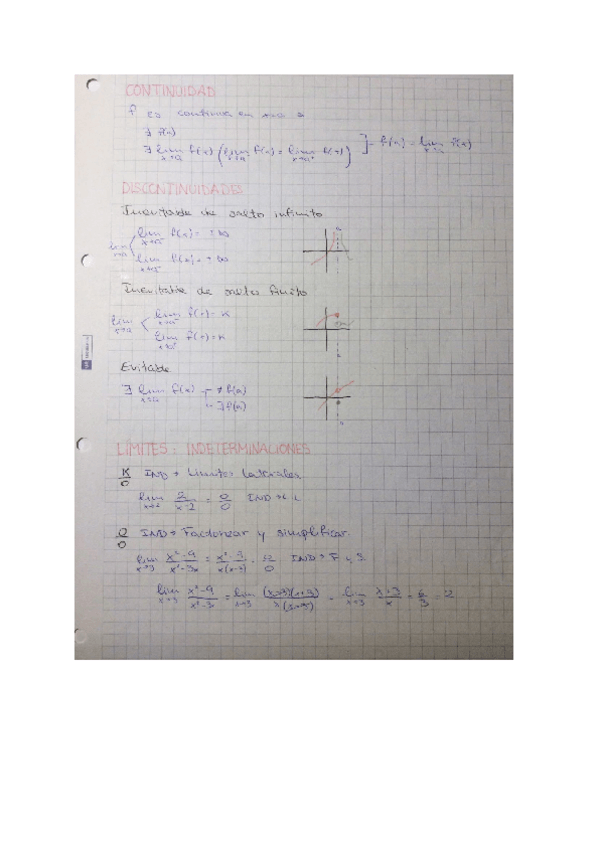 CONTINUIDAD
f es continua en x=a
∃ f(a)
∃ lim x→a f(x) (lim x→a⁻ f(x) = lim x→a⁺ f(x)) ] f(a) = lim x→a f(x)
DISCONTINUIDADES
Inevitable de salto infinito
lim x→a < lim f(x) = ±∞
lim f(x) = ±∞
Inevitable de salto finito
lim x→a < lim f(x) = K
lim f(x) = K
Evitable
∃ lim x→a f(x) ≠ f(a)
∄ f(a)
LÍMITES: INDETERMINACIONES
K/0 IND → Límites laterales
lim x→2 2/(x-2) = 0/0 IND → L L
0/0 IND → Factorizar y simplificar
lim x→3 (x²-9)/(x²-3x) = 0/0 IND → F y S
lim x→3 (x²-9)/(x²-3) = lim x→3 = lim x→3 (x+3)/x = 6/3 = 2